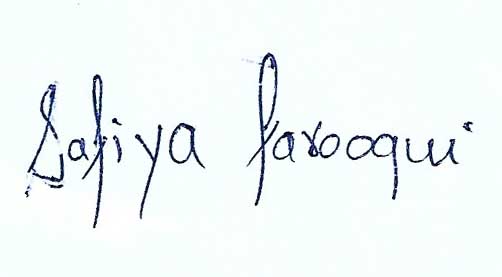 Safiya Farooqui